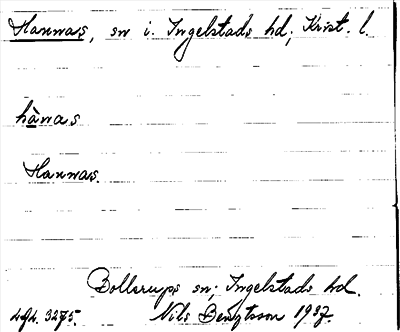 Hannas, sn i. Ingelstads hd, Krist. l.
hànas
Hannas.
Bollerups sn; Ingelstads hd.
Nils Bengtsson 1937.